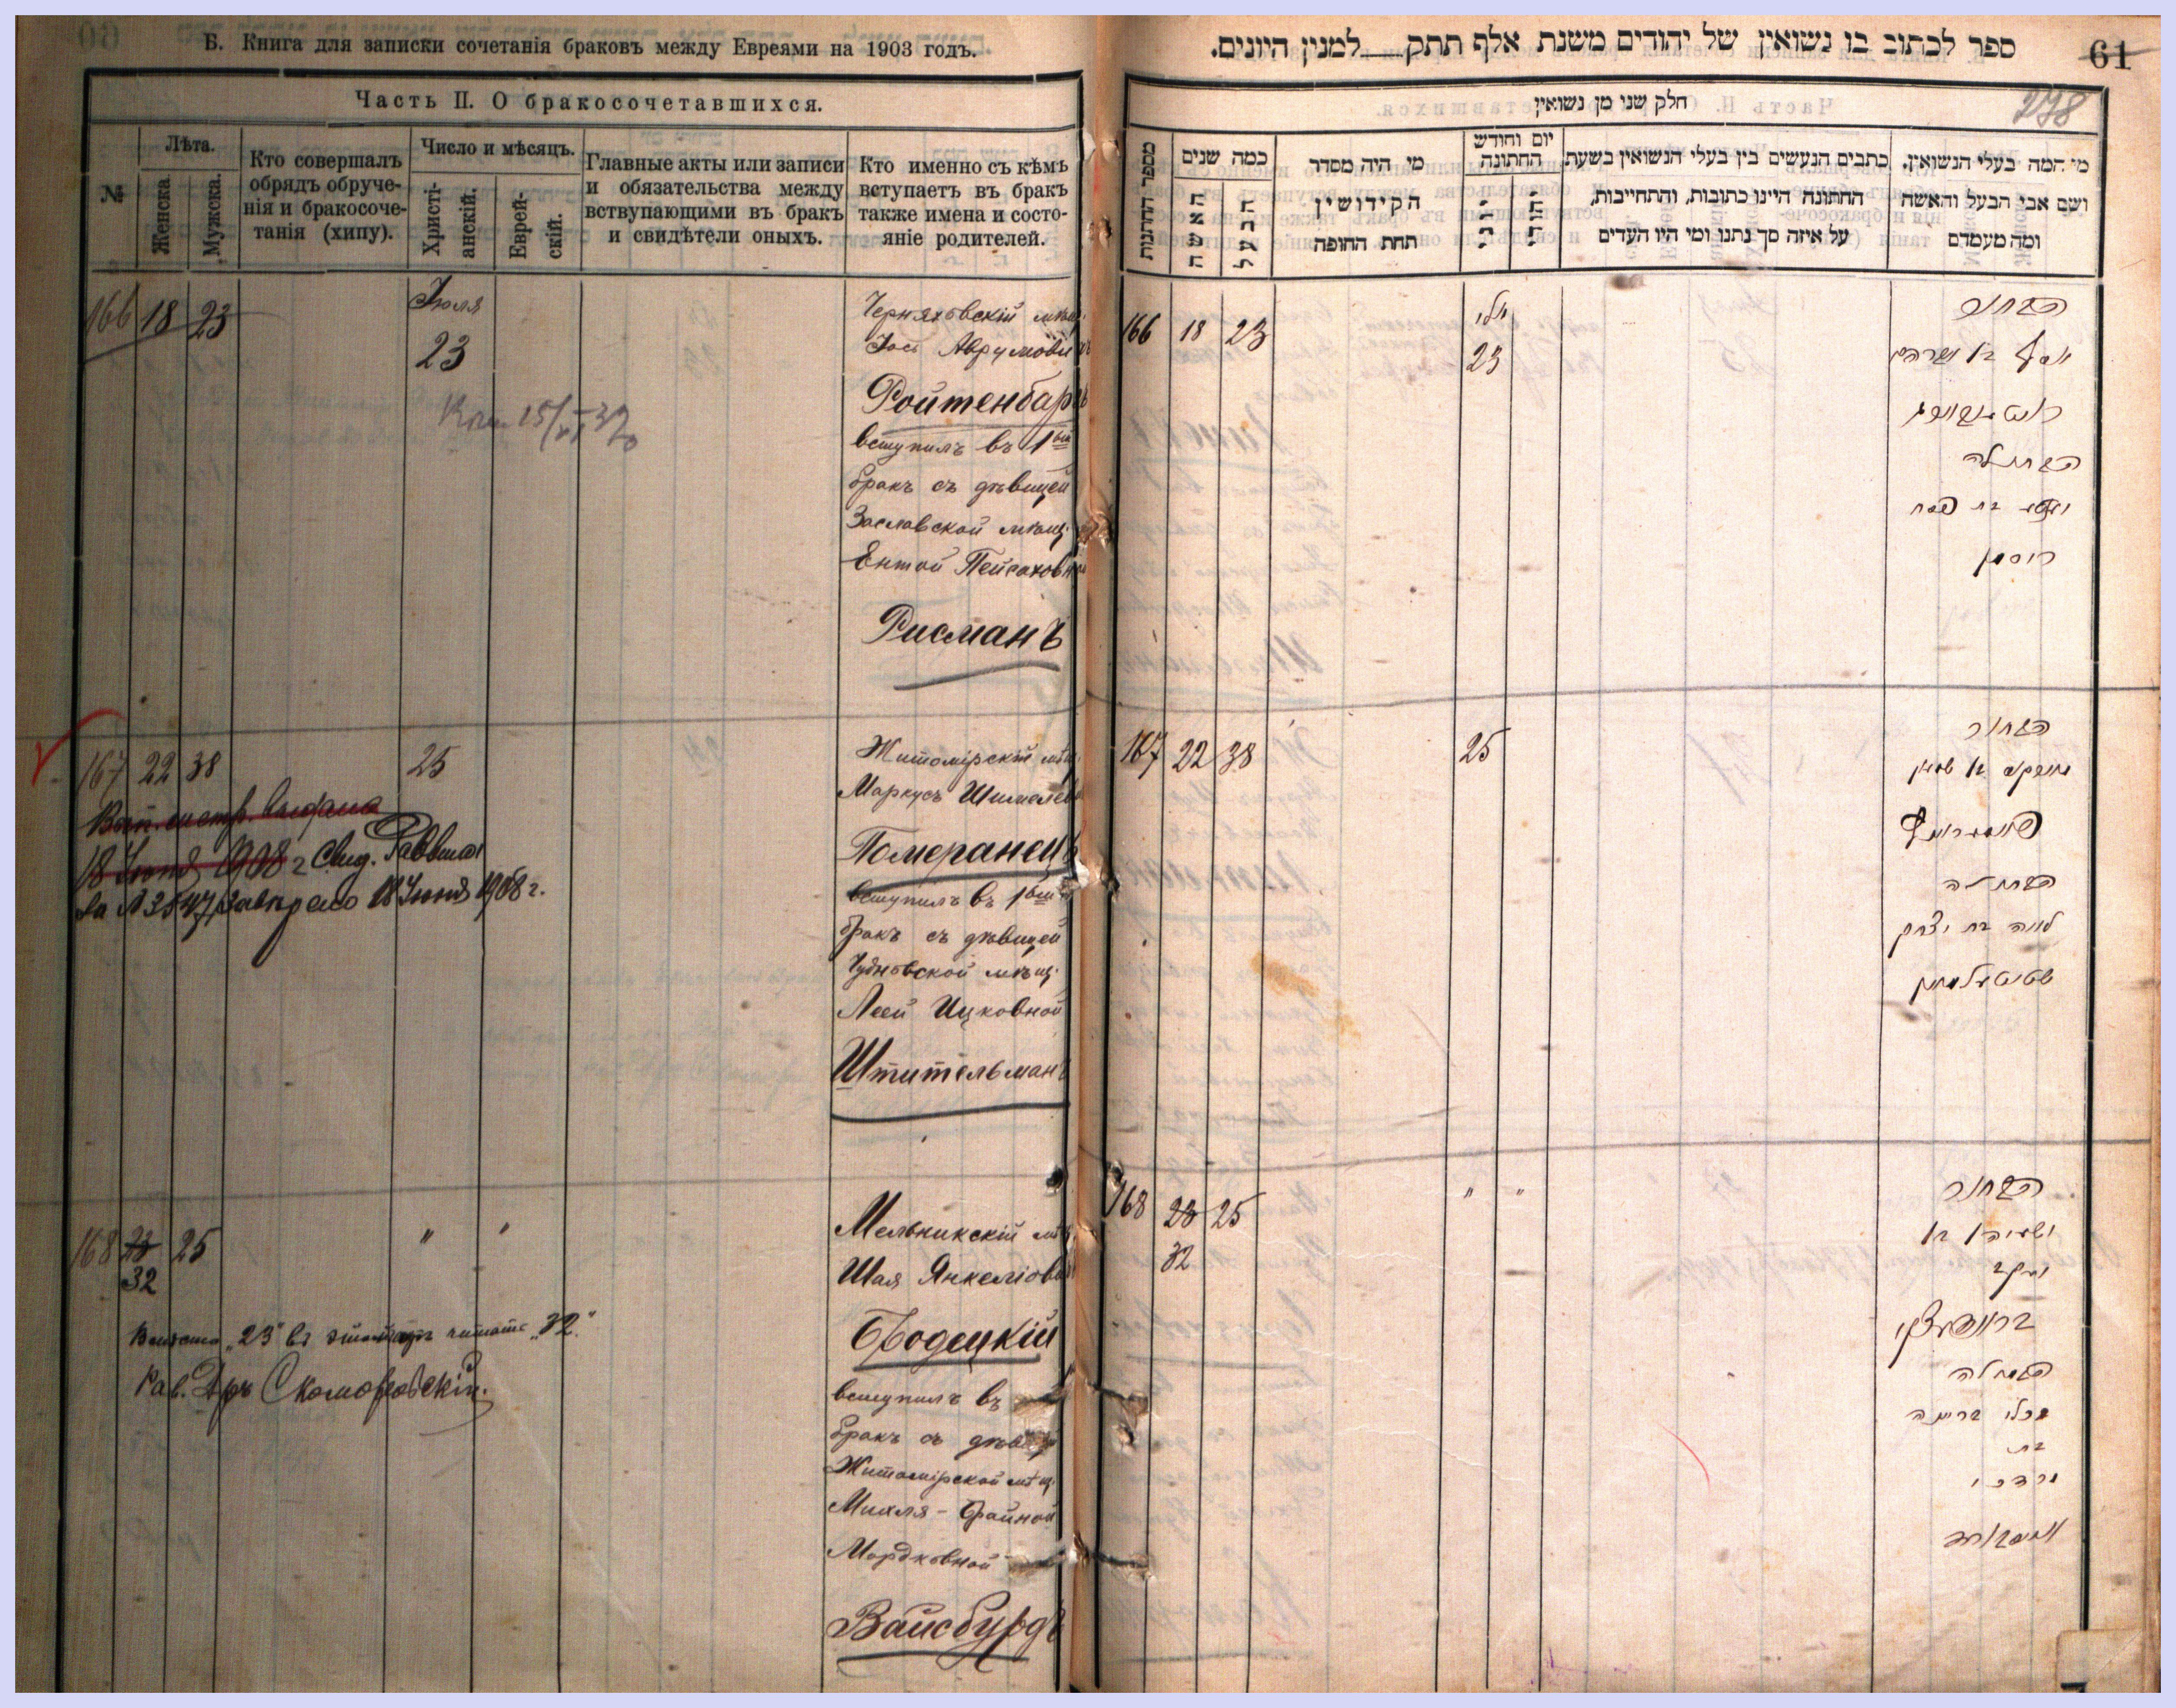 Б. Книга для записки сочетанія браковъ между Евреями на 1903 годъ.
Часть II. О бракосочетавшихся.
№
Лѣта.
Женска.
Мужска.
Кто совершалъ
обрядъ обруче-
нія и бракосоче-
танія (хипу).
Число и мѣсяцъ.
Христі-
анскій.
Еврей-
скій.
Главные акты или записи
и обязательства между
вствупающими въ бракъ
и свидѣтели оныхъ.
Кто именно съ кѣмъ
вступаетъ въ бракъ
также имена и состо-
яніе родителей.
166 18 23
Іюля
23
Черняховскій мѣщ.
Іось Аврумови
Ройтенбаргъ
вступилъ въ 1ый
бракъ съ дѣвицей
Заславской мѣщ.
Ентой Пейсаховной
Рисманъ
167 22 38
25
18 Іюня 1908 г Свид.
18 Іюня 1908 г.
Житомірскій мѣщ.
Маркусъ Шмулев
Померанецъ
вступилъ въ 1ый
бракъ съ дѣвицей
Чудновской мѣщ.
Леей Ицковной
Штительманъ
168 23 25
32
" "
Вмѣсто „23" въ читать „32."
Рав. Д-ръ Скоморовскій.
Мельникскій мѣ
Шая Янкеліов
Бродецкій
вступилъ въ
бракъ съ дѣвиц
Житомірской мѣщ.
Михля-Брайной
Мордковной
Вайсбурдъ
ספר לכתוב בו נשואין של יהודים משנת אלף תתק___למנין היונים.
61
278
חלק שני מן נשואין
מספר החתנות
כמה שנים
האשה
הבעל
מי היה מסדר
הקידושין
תחת החופה
יום וחודש
החתונה
יוני
יהודי
כתבים הנעשים בין בעלי הנשואין בשעת
החתונה היינו כתובות, והתחייבות,
על איזה סך נתנו ומי היו העדים
מי המה בעלי הנשואין,
ושם אבי הבעל והאשה
ומה מעמדם
166 18 23
יולי
23
הבחור
יוסף בן אברהם
רויטענבארג
הבתולה
יענטא בת פסח
ריסמן
167 22 38
25
הבחור
מארקוס בן שמואל
פאמעראנץ
הבתולה
לאה בת יצחק
שטיטעלמאן
168 23 25
32
" "
הבחור
ישעיה בן
יעקב
בראדעצקי
הבתולה
מיכלי בריינה
בת
מרדכי
ווייסבורד